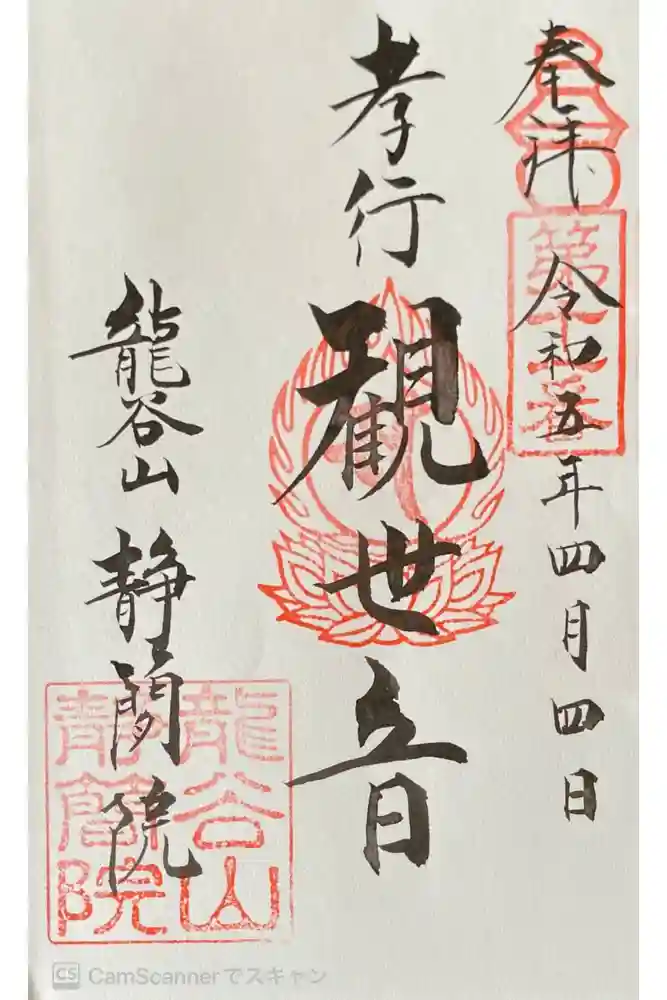 奉拝
令和五年四月四日
孝行
観世音
龍谷山 静簡院
龍谷山
静簡院
CS CamScannerでスキャン